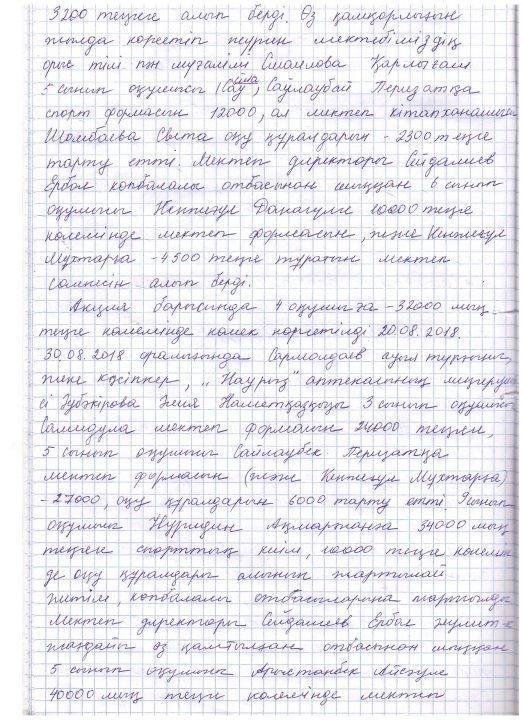 3200 теңгеге алып берді. Өз қамқорлығын
жылда көрсетіп жүрген мектебіміздің
орыс тілі пән мұғалімі Смаилова Қарлығаш
5 сынып оқушысы Сайлаубай Перизатқа
спорт формасын 12000, ал мектеп кітапханашысы
Шомбаева Света оқу құралдарын - 2300 теңге
тарту етті. Мектеп директоры Сейдалиев
Ербол көпбалалы отбасынан шыққан 6 сынып
оқушысы Данагүлге 10000 теңге
көлемінде мектеп формасын, және
Мұхтарға - 4500 теңге тұратын мектеп
сөмкесін алып берді.
Акция барысында 4 оқушыға - 32000 мың
теңге көлемінде көмек көрсетілді 20.08.2018.
30.08.2018 аралығында Сармолдаев ауыл тұрғыны,
жеке кәсіпкер, "Наурыз" аптекасының меңгеруші
сі Зубәкірова 3 сынып оқушысы
мектеп формасын 24000 теңгеге,
5 сынып оқушысы Сайлаубек Перизатқа
мектеп формасын (және Мұхтарға)
- 27000, оқу құралдарын 6000 тарту етті. 9 сынып
оқушысы Нуридин Ақмаржанға 34000 мың
теңгеге спорттық киім, 10000 теңге көлемін
де оқу құралдары алынып жартылай
жетім, көпбалалы отбасыларына таратылды
Мектеп директоры Сейдалиев Ербол
жағдайы аз қамтылған отбасынан шыққан
5 сынып оқушысы Арыстанбек
40000 мың теңге көлемінде мектеп